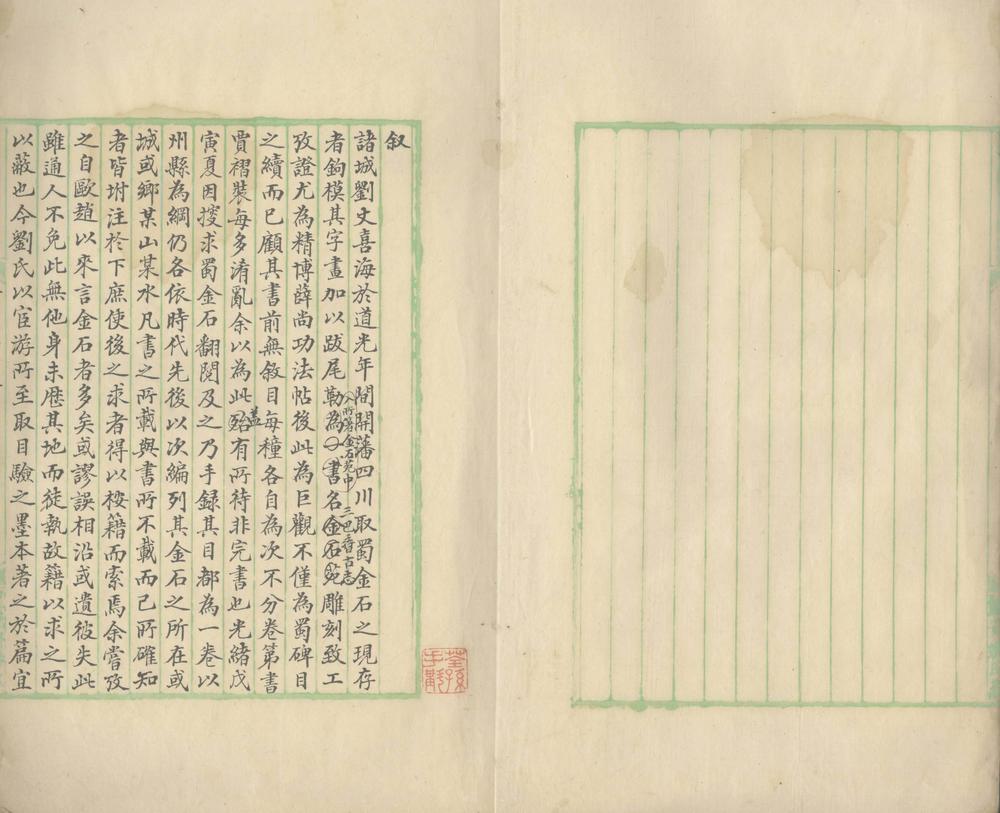 叙
諸城劉丈喜海於道光年間開藩四川取蜀金石之現存
入所著金石苑中 三巴舂古志
者鉤模其字畫加以跋尾勒為一書名金石苑雕刻致工
攷證尤為精博薛尚功法帖後此為巨觀不僅為蜀碑目
之續而已顧其書前無敘目每種各自為次不分卷第書
蓋
賈褶裝每多淆亂余以為此殆有所待非完書也光緒戊
寅夏因搜求蜀金石翻閱及之乃手録其目都為一卷以
州縣為綱仍各依時代先後以次編列其金石之所在或
城或鄉某山某水凡書之所載與書所不載而已所確知
者皆坿注於下庶使後之求者得以桉籍而索焉余嘗攷
之自歐趙以來言金石者多矣或謬誤相沿或遺彼失此
雖通人不免此無他身未歷其地而徒執故籍以求之所
以蔽也今劉氏以宦游所至取目驗之墨本著之於篇宜
荃孫